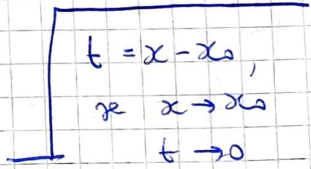 t = x - x₀,
x → x₀
t → 0